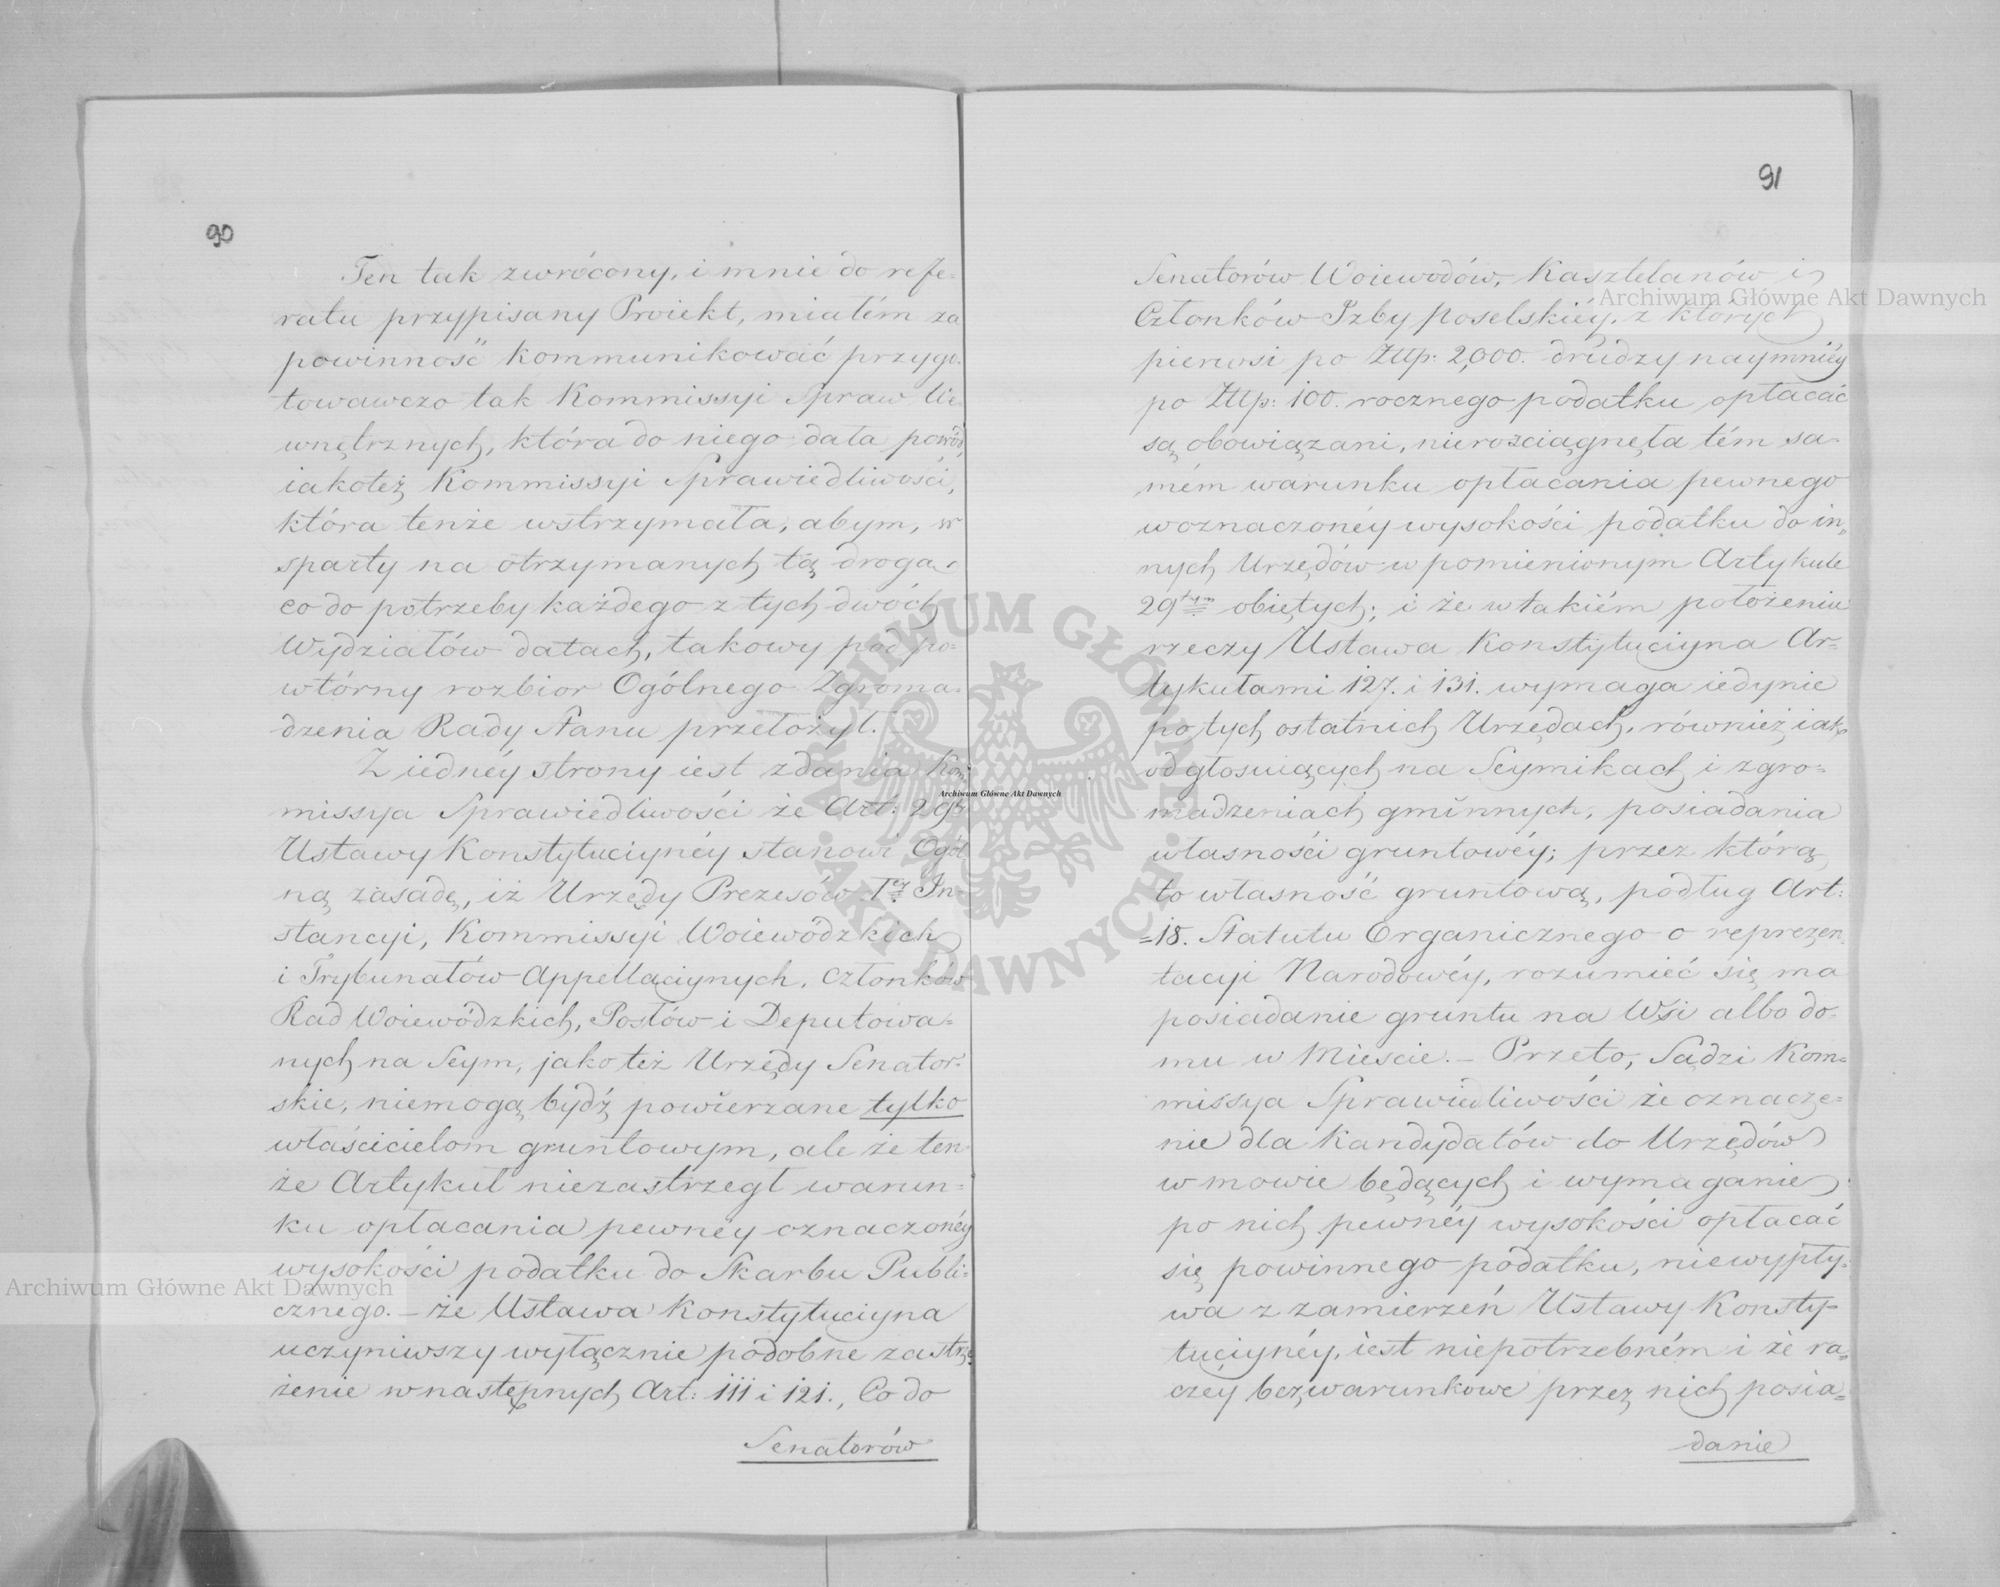 90
Ten tak zwrócony, i mnie do refe-
ratu przypisany Proiekt, miałém za
powinność kommunikować przygo-
towawczo tak Kommissyi Spraw We-
wnętrznych, która do niego dała powód,
iakoteż Kommissyi Sprawiedliwości,
która tenże wstrzymała, abym, w
sparty na otrzymanych tą drogą
co do potrzeby każdego z tych dwóch
Wydziałów datach, takowy pod po-
wtórny rozbior Ogólnego Zgroma-
dzenia Rady Stanu przełożył.
Z iednéy strony iest zdania Kom-
missya Sprawiedliwości że Art: 29ty
Ustawy Konstytucyinéy stanowi Ogól
ną zasadę, iż Urzędy Prezesów 1éy In-
stancyi, Kommissyi Woiewódzkich
i Trybunałów Appellacyinych, Członków
Rad Woiewódzkich, Posłów i Deputowa-
nych na Seym, jakoteż Urzędy Senator-
skie, niemogą bydź powierzane tylko
właścicielom gruntowym, ale że ten-
że Artykuł niezastrzegł warun-
ku opłacania pewnéy oznaczonéy
wysokości podatku do Skarbu Publi-
cznego. – że Ustawa Konstytucyina
uczyniwszy wyłącznie podobne zastrze
żenie w następnych Art: 111 i 121., Co do
Senatorów
91
Senatorów Woiewodów, Kasztelanów i
Członków Izby poselskiéy, z których
pierwsi po Złłp: 2,000. drudzy naymniéy
po Złłp: 100. rocznego podatku opłacać
są obowiązani, nierozciągnęła tém sa-
mém warunku opłacania pewnego
w oznaczonéy wysokości podatku do in-
nych Urzędów w pomienionym Artykule
29tym obiętych; i że w takiém położeniu
rzeczy Ustawa Konstytucyina Ar-
tykułami 127. i 131. wymaga iedynie
po tych ostatnich Urzędach, również iak
od głosuiących na Seymikach i zgro-
madzeniach gminnych, posiadania
własności gruntowéy; przez którą
to własność gruntową, podług Art:
18. Statutu Organicznego o reprezen-
tacyi Narodowéy, rozumieć się ma
posiadanie gruntu na Wsi albo do-
mu w Mieście. – Przeto, Sądzi Kom-
missya Sprawiedliwości że oznacze-
nie dla Kandydatów do Urzędów
w mowie będących i wymaganie
po nich pewnéy wysokości opłacać
się powinnego podatku, niewypły-
wa z zamierzeń Ustawy Konsty-
tucyinéy, iest niepotrzebném i że ra-
czéy bezwarunkowe przez nich posia-
danie
Archiwum Główne Akt Dawnych
Archiwum Główne Akt Dawnych
Archiwum Główne Akt Dawnych
ARCHIWUM GŁÓWNE AKT DAWNYCH